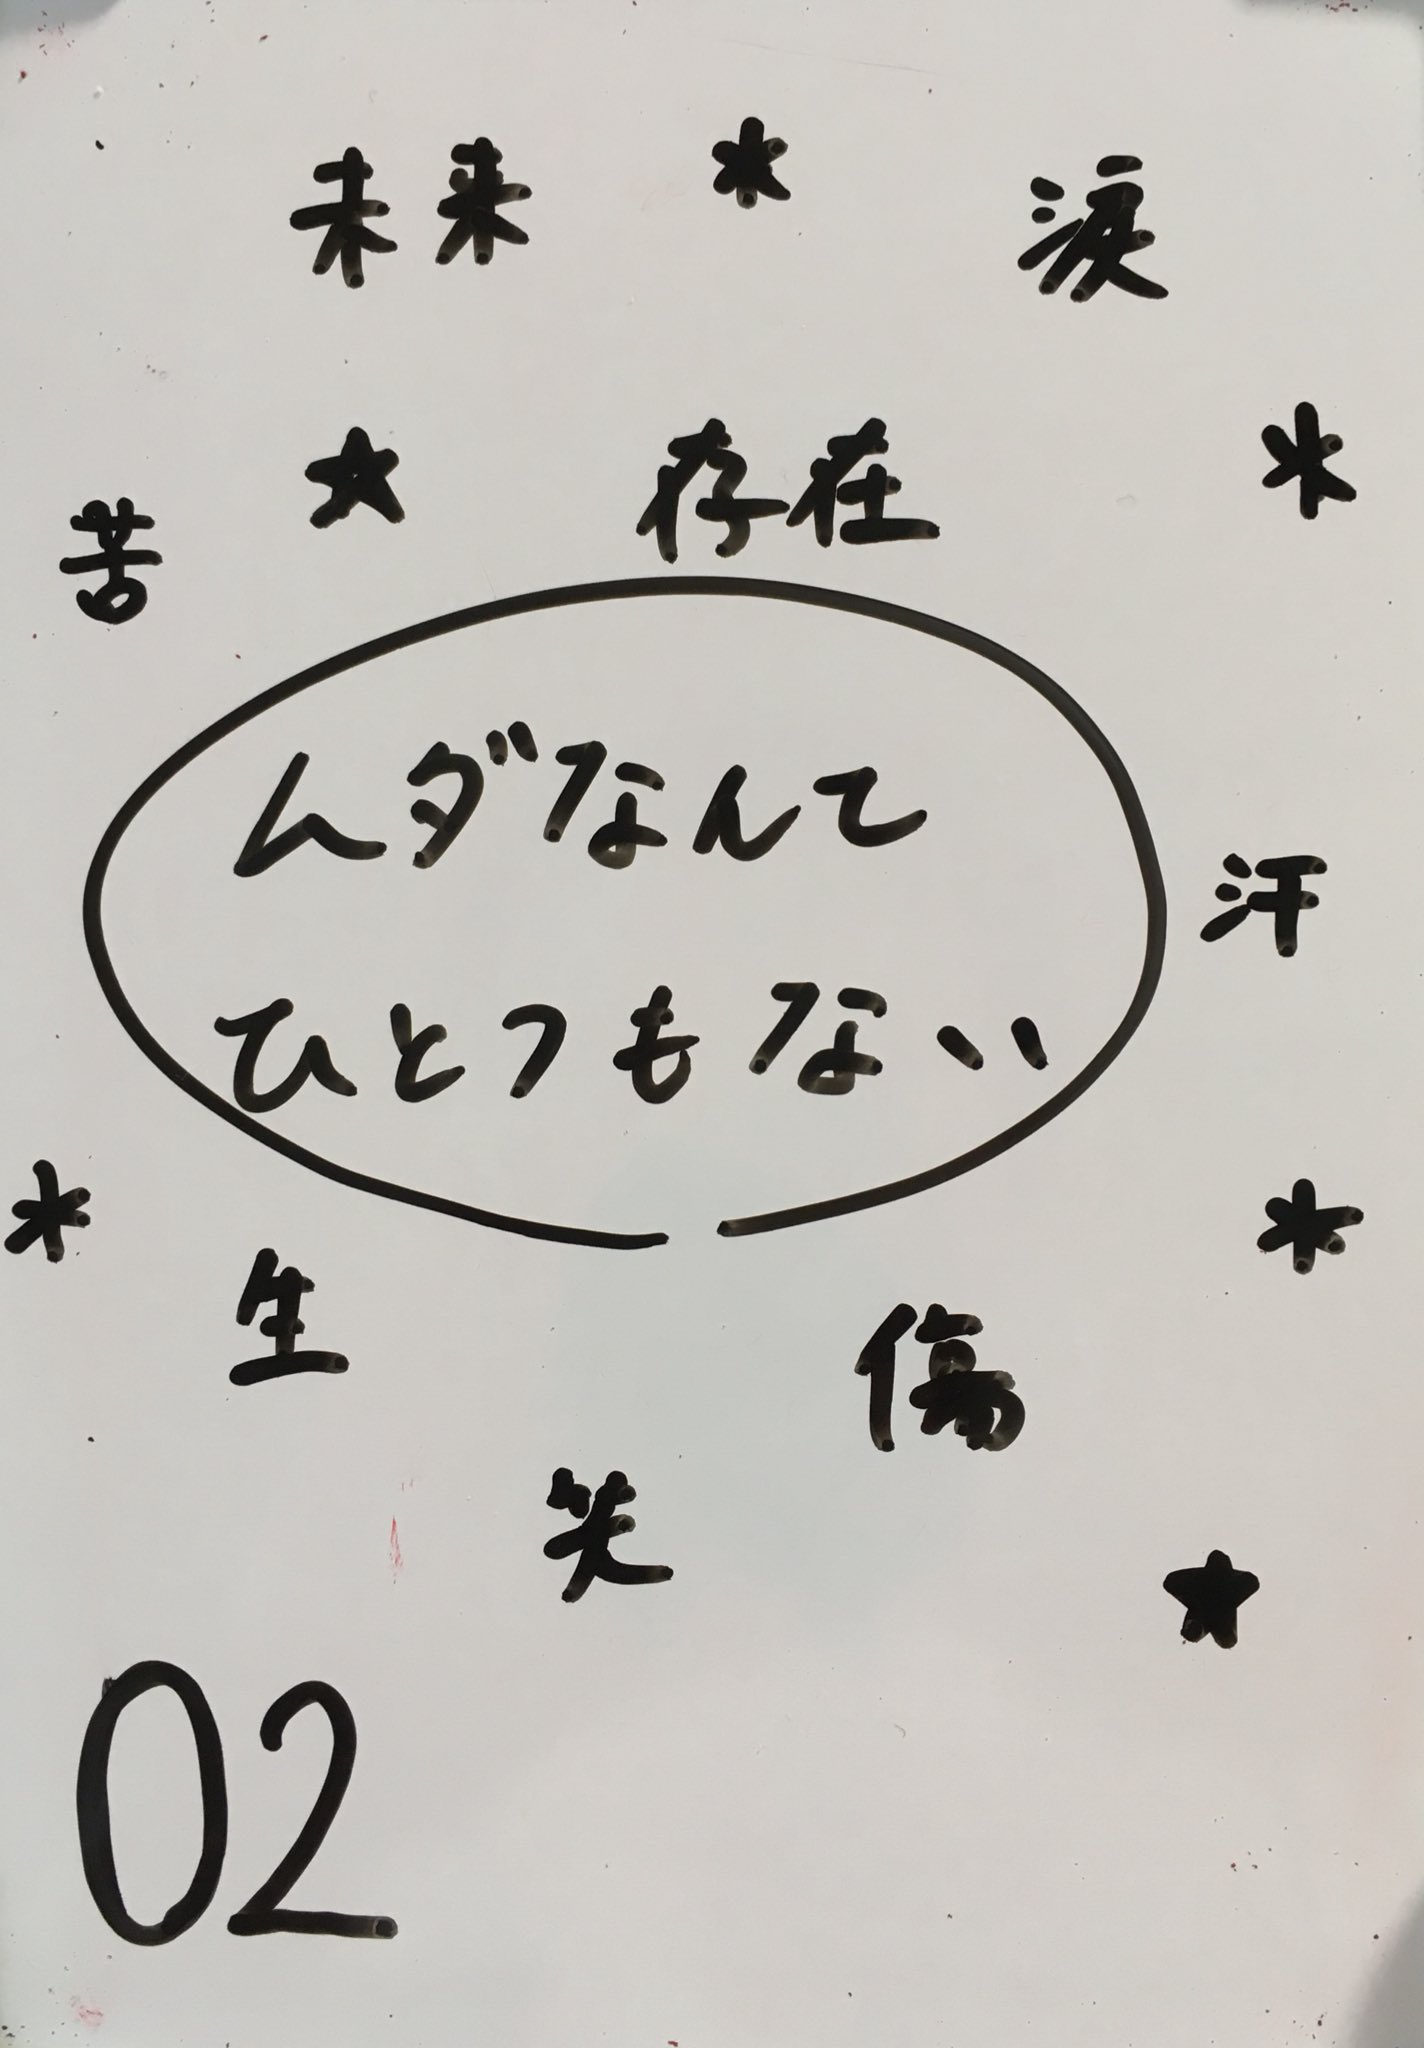 未来
涙
存在
苦
ムダなんて
ひとつもない
汗
生
傷
笑
02